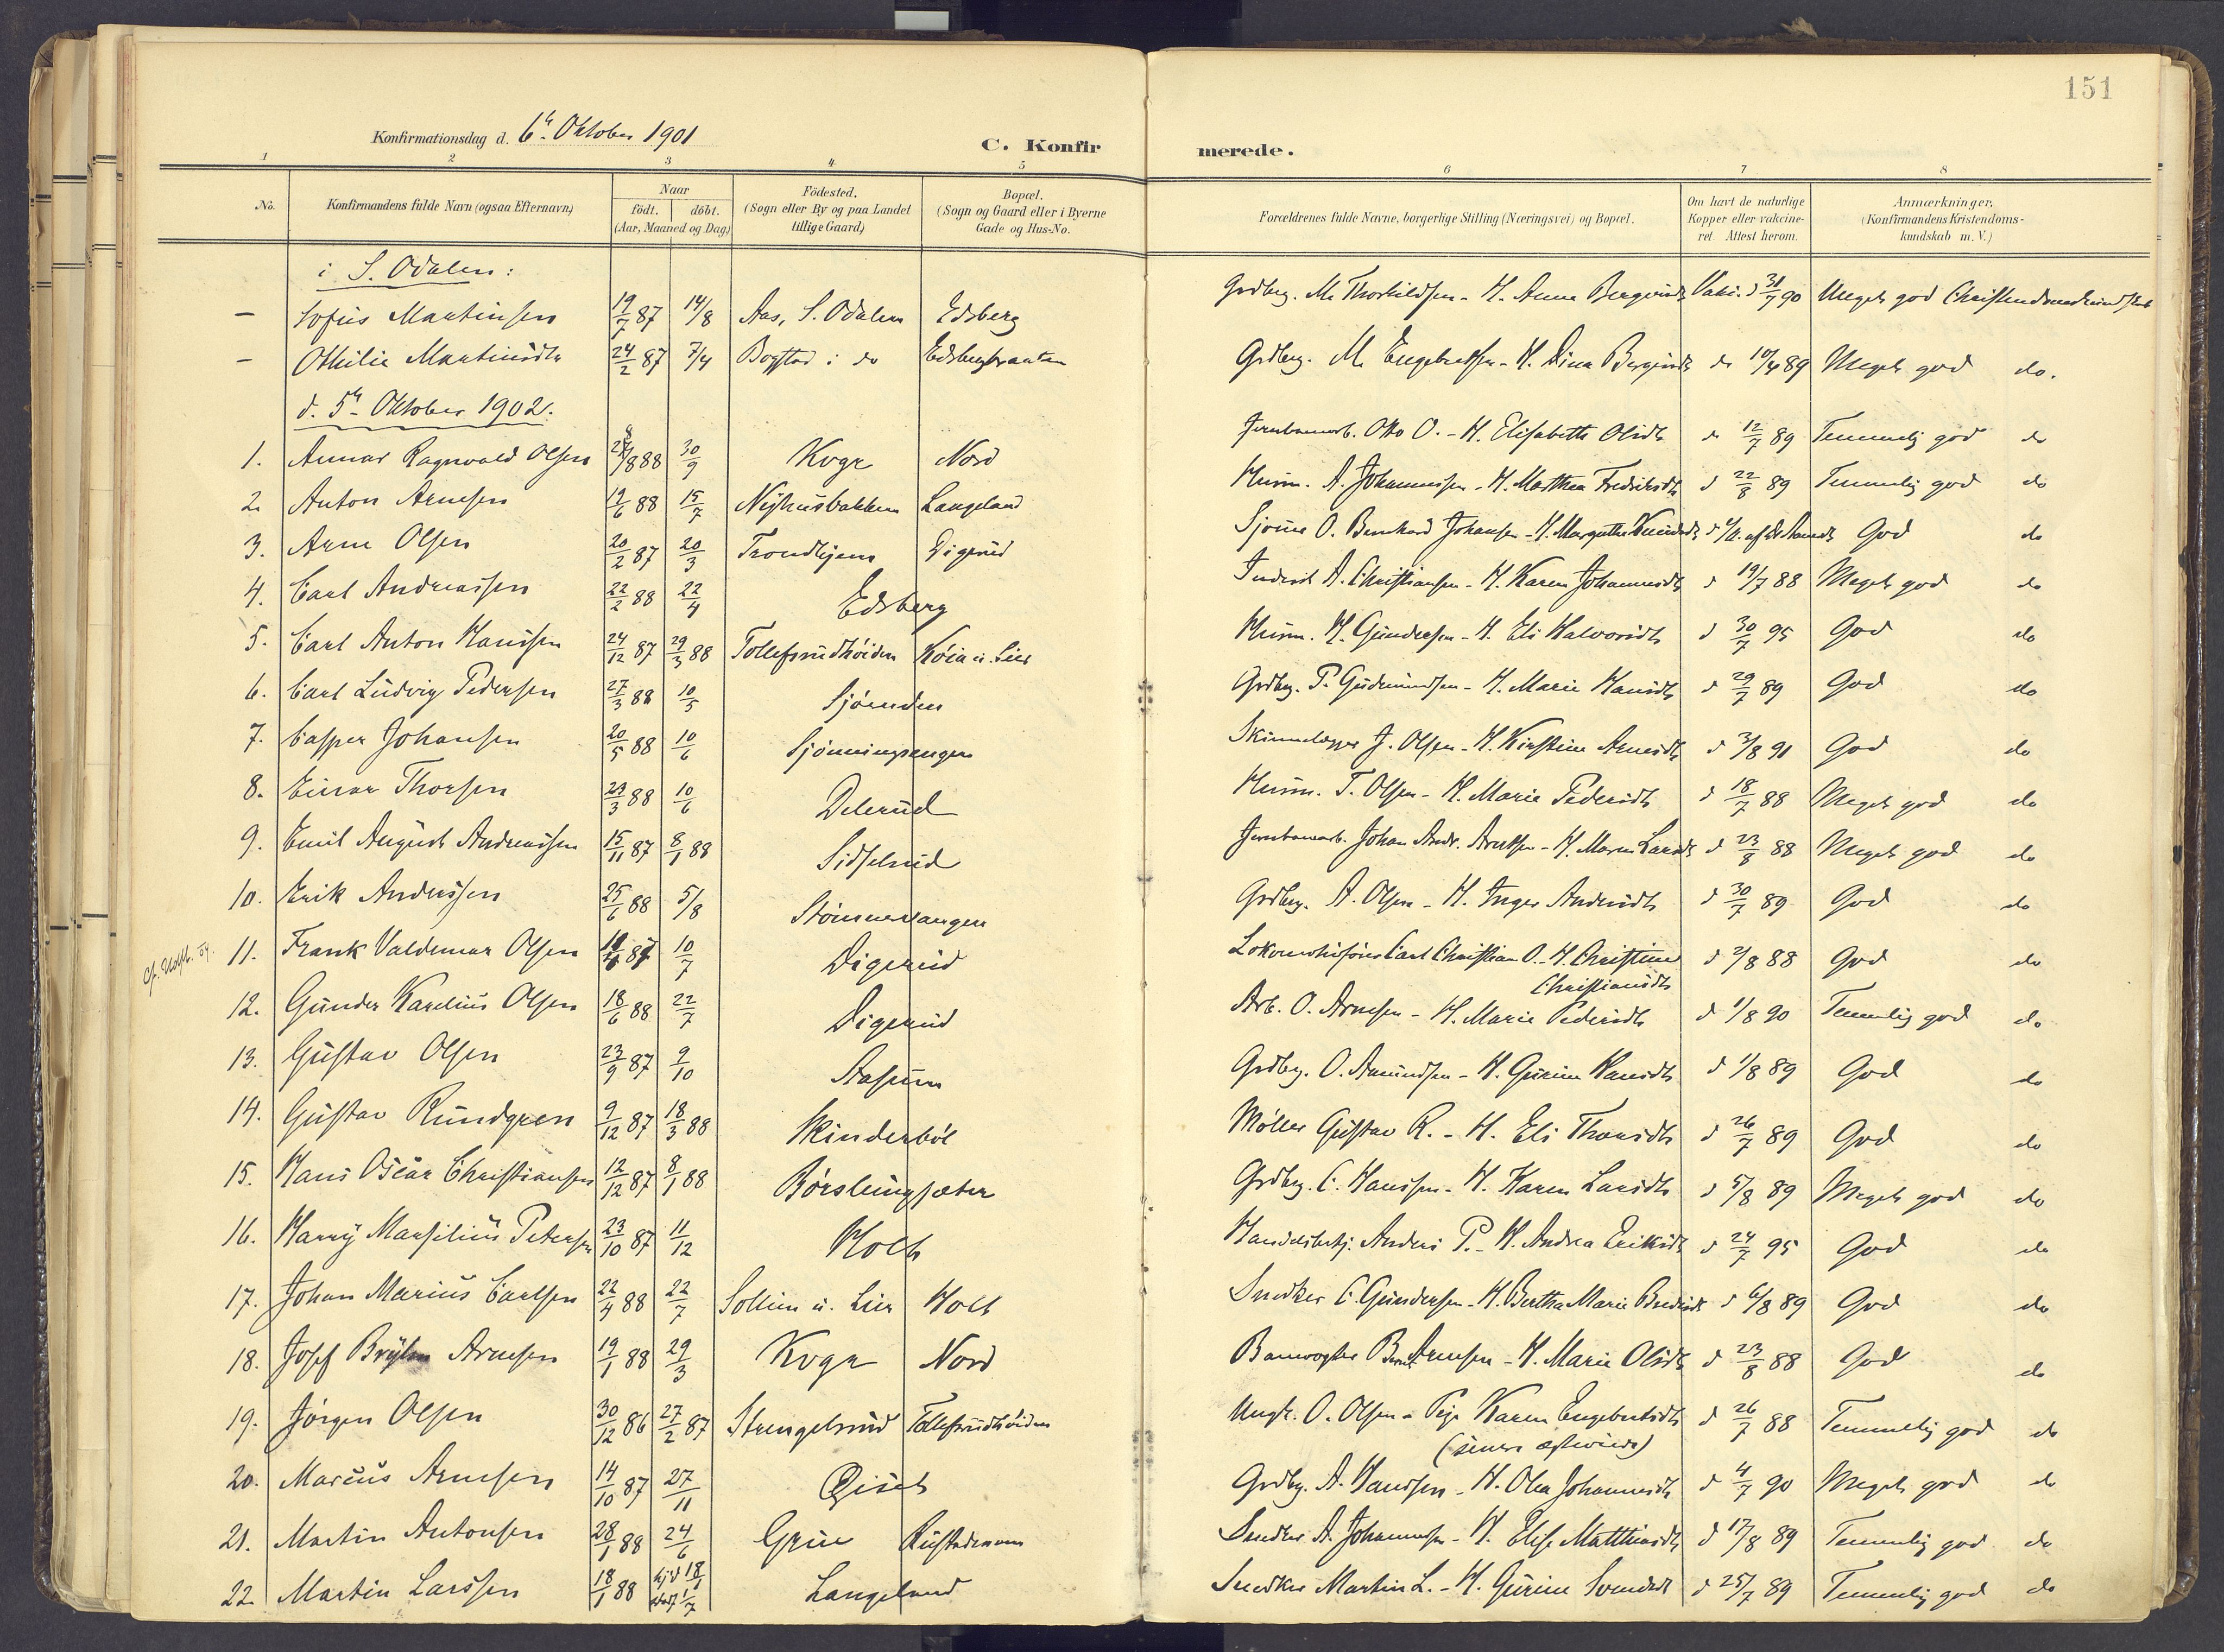 151
Konfirmationsdag d. 6te Oktober 1901
C. Konfirmerede.
1 2 3 4 5 6 7 8
No. Konfirmandens fulde Navn (ogsaa Efternavn) Naar født. døbt. (Aar, Maaned og Dag) Födested. (Sogn eller By og paa Landet tillige Gaard) Bopæl. (Sogn og Gaard eller i Byerne Gade og Hus-No. Forældrenes fulde Navne, borgerlige Stilling (Næringsvei) og Bopæl. Om havt de naturlige Kopper eller vakcineret. Attest herom. Anmærkninger. (Konfirmandens Kristendomskundskab m. V.)
i S. Odalen:
– Sofus Martinsen 19/7 87 14/8 Aas, S. Odalen Edsberg Grdbrg. M. Thorkildsen - H. Anne Bergersdt Vakc. d 31/7 90 Meget god Christendomskundskab
– Othilie Martinsdtr 24/2 87 7/4 Bogstad i do Edsbergbraaten Grdbrg. M. Engebretsen - H. Dina Bergersdt do 10/4 89 Meget god do.
d. 5te Oktober 1902.
1. Annar Ragnvald Olsen /8 88 30/9 Kvge Nord Jernbanearb. Otto O. - H. Elisabeth Olsdt do 12/7 89 Temmelig god do
2. Anton Arnesen 19/6 88 15/7 Nyhusbakken Langeland Husm. A. Johannessen - H. Marthea Fredriksdt d 22/8 89 Temmelig god do
3. Arne Olsen 20/2 87 20/3 Trondhjem Digerud O. Bernhard Johansen - H. Margrethe God do
4. Carl Andreassen 22/2 88 22/4 Edsberg A. Christiansen - H. Karen Johannesdt d 19/7 88 Meget god do
5. Carl Anton Hanssen 24/12 87 29/3 88 Tollefsrudhöiden Köia u. Lier Husm. H. Gundersen - H. Eli Halvorsdt d 30/7 95 God do
6. Carl Ludvig Pedersen 27/3 88 10/5 Sjöenden Grdbrg. P. Gudmundsen - H. Marie Hansdt d 29/7 89 God do
7. Casper Johansen 20/5 88 10/6 Sjönningsengen J. Olsen - H. Kirstine Arnesdt d 3/8 91 God do
8. Einar Thorsen 23/3 88 10/6 Delerud Husm. T. Olsen - H. Marie Pedersdt d 18/7 88 Meget god do
9. Emil August Andreassen 15/11 87 8/1 88 Sidselrud Jernbanearb. Johan Andr. - H. Maren Larsdt d 23/8 88 Meget god do
10. Erik Anderssen 25/6 88 5/8 Stömnertangen Grdbrg. A. Olsen - H. Inger Andersdt d 30/7 89 God do
11. Frank Valdemar Olsen 10/7 Digerud Lokomotivförer Carl Christian O. - H. Christine Christiansdt d 2/8 88 God do
12. Gunder Karelius Olsen 18/6 88 22/7 Digerud Arb. O. Arnesen - H. Marie Pedersdt d 1/8 90 Temmelig god do
13. Gustav Olsen 23/9 87 9/10 Aasum Grdbrg. O. Amundsen - H. Gurine Hansdt d 1/8 89 God do
14. Gustav Rundgren 9/12 87 18/3 88 Skinderböl Møller Gustav R. - H. Eli Thorsdt d 26/7 89 God do
15. Hans Oscar Christiansen 12/12 87 8/1 88 Börslungsæter Grdbrg. C. Hanssen - H. Karen Larsdt d 5/8 89 Meget god do
16. Harry Marsilius Petersen 23/10 87 11/12 Holt Handelsbetj. Anders P. - H. Andrea Eriksdt d 24/7 95 God do
17. Johan Marius Carlsen 22/4 88 22/7 Sollien u. Lier Holt Snedker C. Gundersen - H. Bertha Marie d 6/8 89 God do
18. Josef Arnesen 19/1 88 29/3 Kvge Nord Banevogter Bernt Arnesen - H. Marie Olsdt d 23/8 88 God do
19. Jörgen Olsen 30/12 86 27/2 87 Strengelsrud Tollefsrudhöiden Ungk. O. Olsen - Pige Karen Engebretsdt (senere ægteviede) d 26/7 88 Temmelig god do
20. Marcus Arnesen 14/10 87 27/11 Qiset Grdbrg. A. Hanssen - H. Olea Johannesdt d 4/7 90 Meget god do
21. Martin Antonsen 28/1 88 24/6 Grue Rustadmoen Snedker A. Johannessen - H. Elise Matthiasdt d 17/8 89 Temmelig god do
22. Martin Larssen 18/1 88 hjd 18/1 stadf 1/7 Langeland Snedker Martin L. - H. Gurine Svendsdt d 25/7 89 Temmelig god do